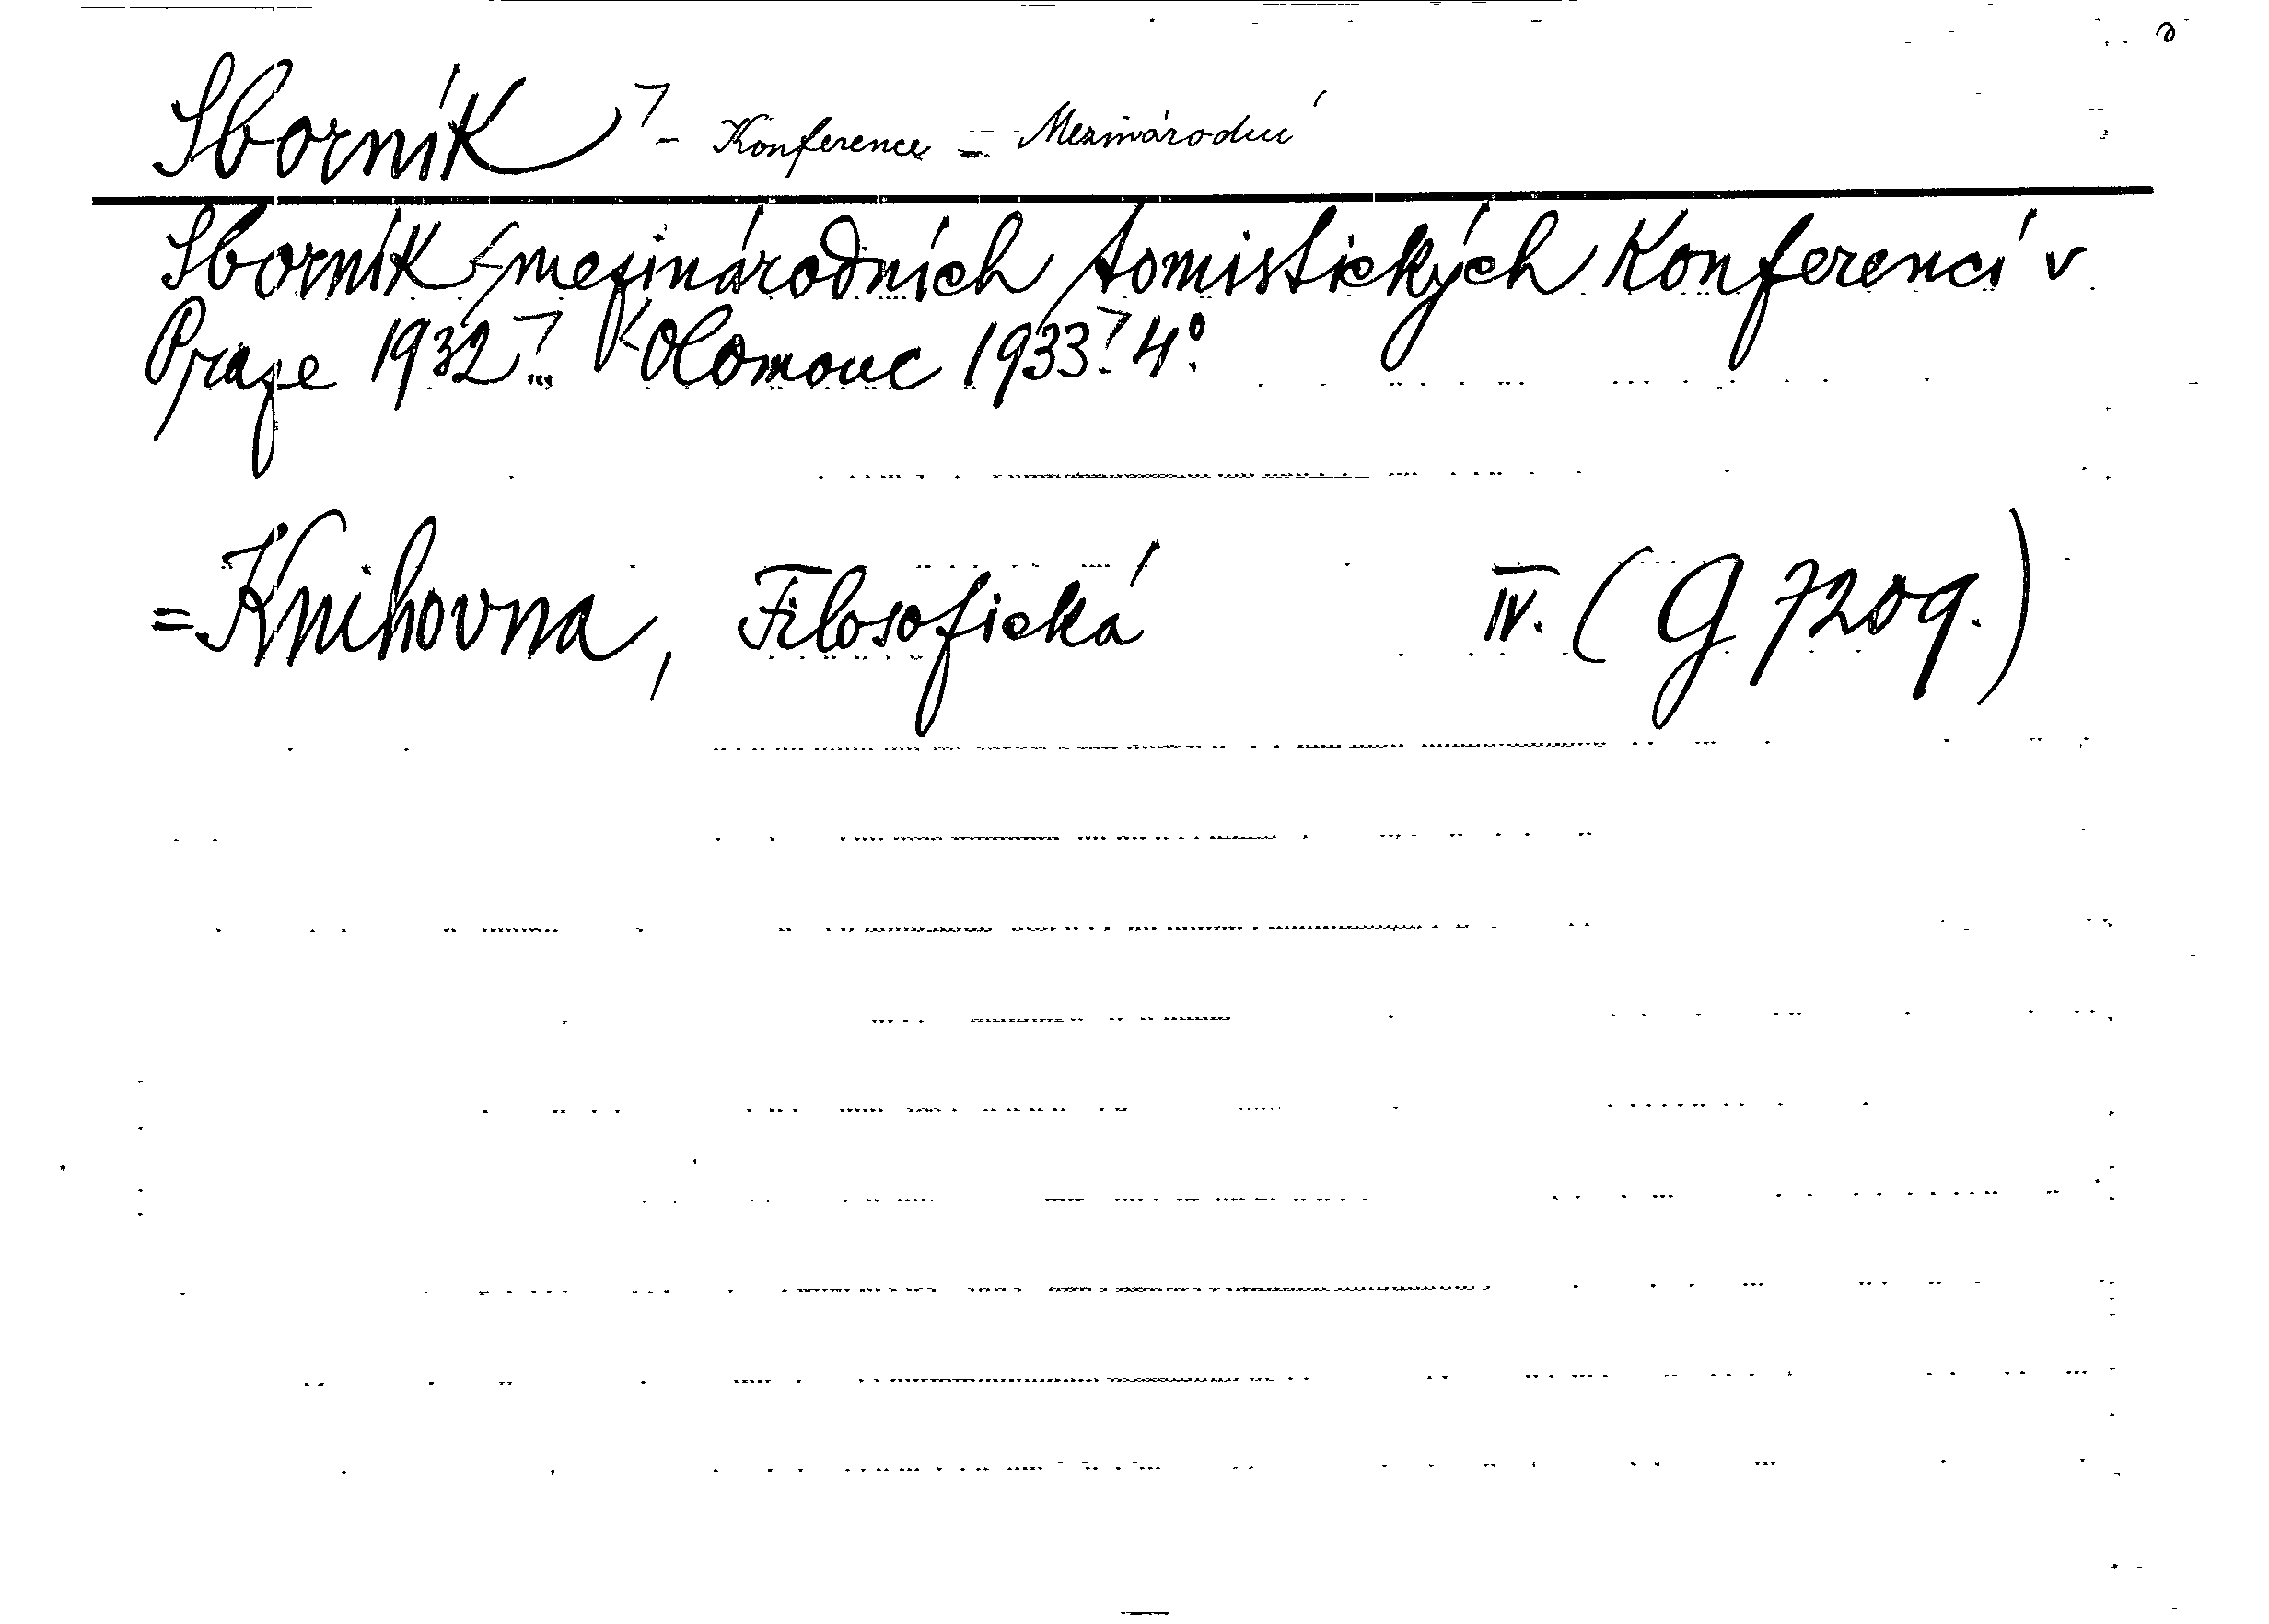 Sborník - Konference = Mezinárodní
Sborník mezinárodních tomistických konferencí v
Praze 1932. Olomouc 1933. 4°.
= Knihovna, Filosofická IV. (G 7209.)